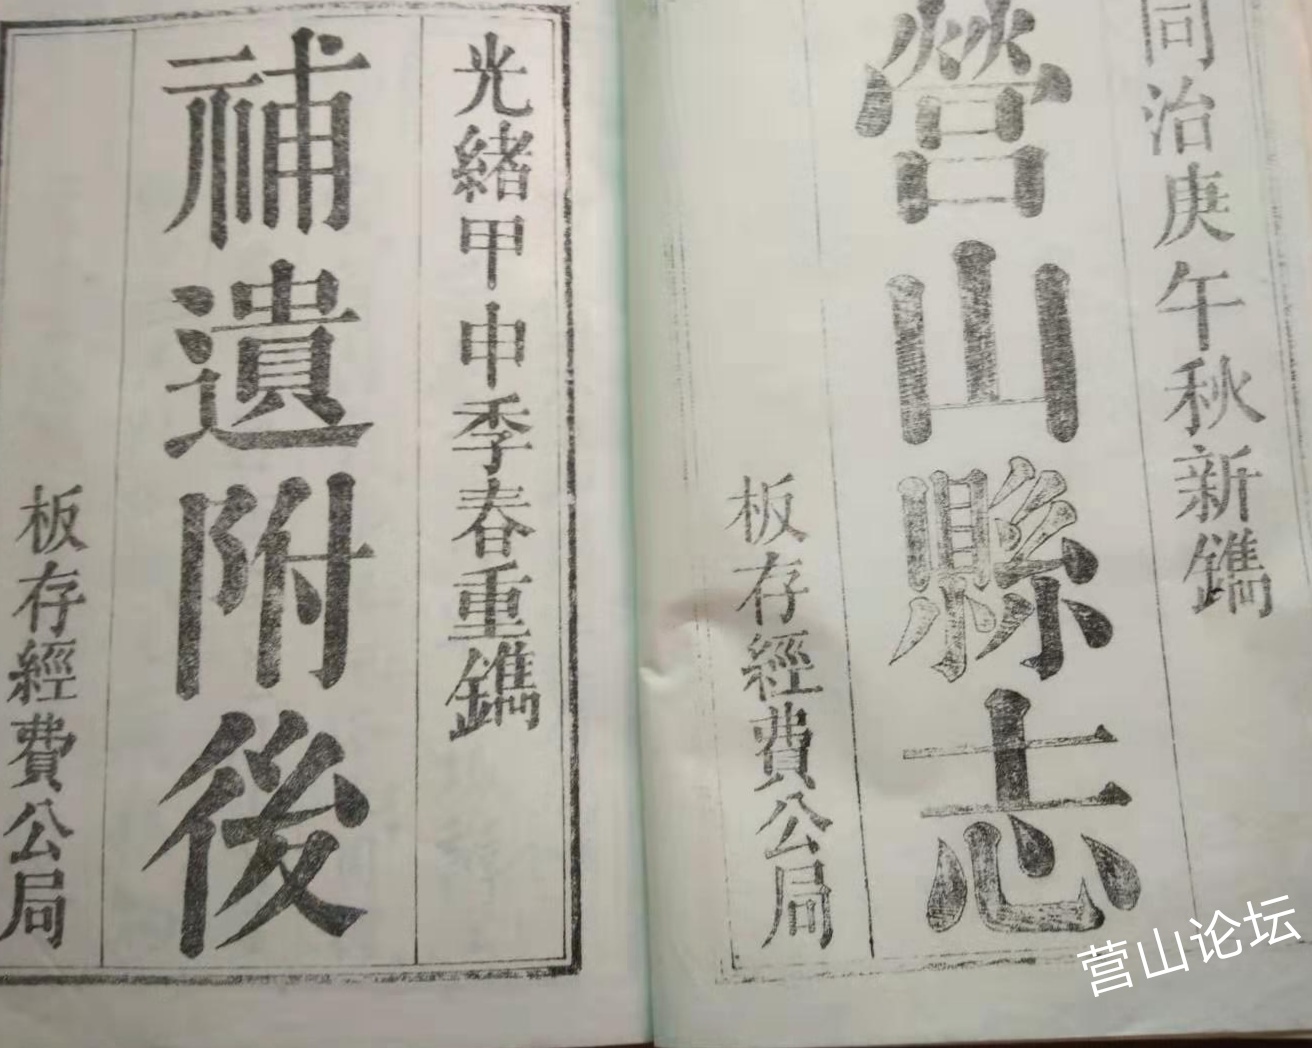 同治庚午秋新鐫
營山縣志
板存經費公局
光緒甲申季春重鐫
補遺附後
板存經費公局
营山论坛